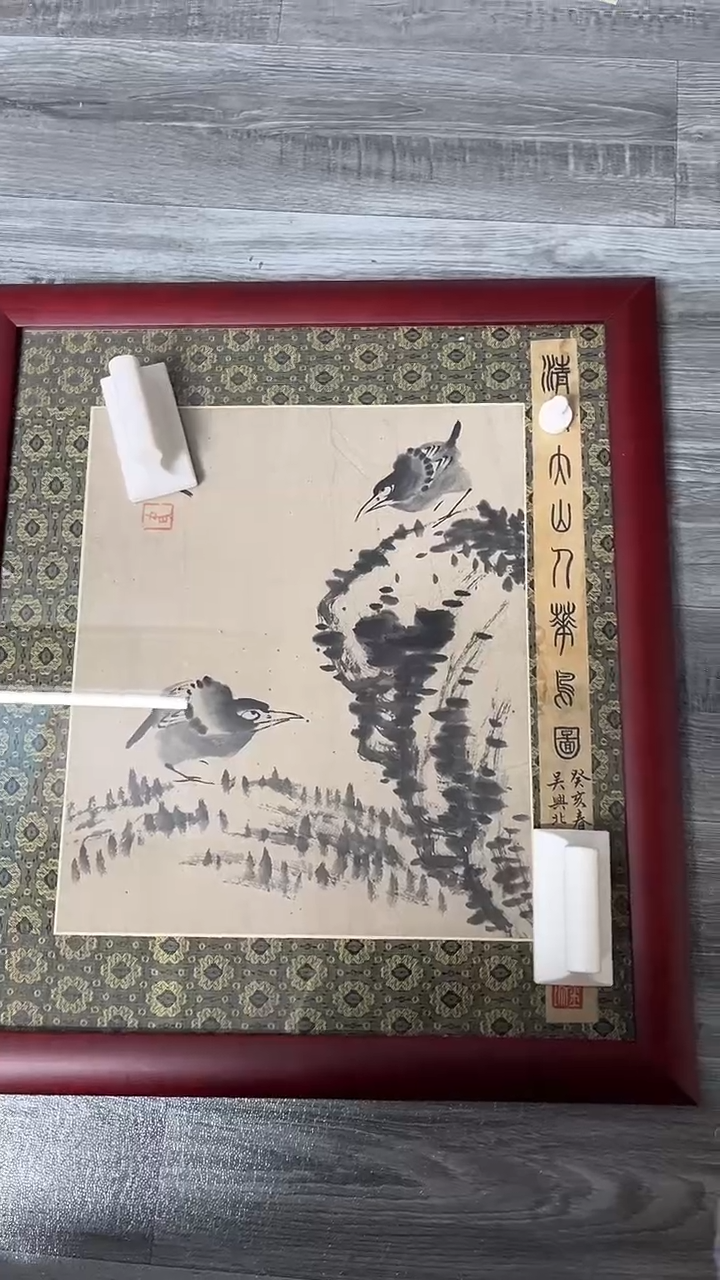 清大山人華鳥圖
癸亥春
吳興北